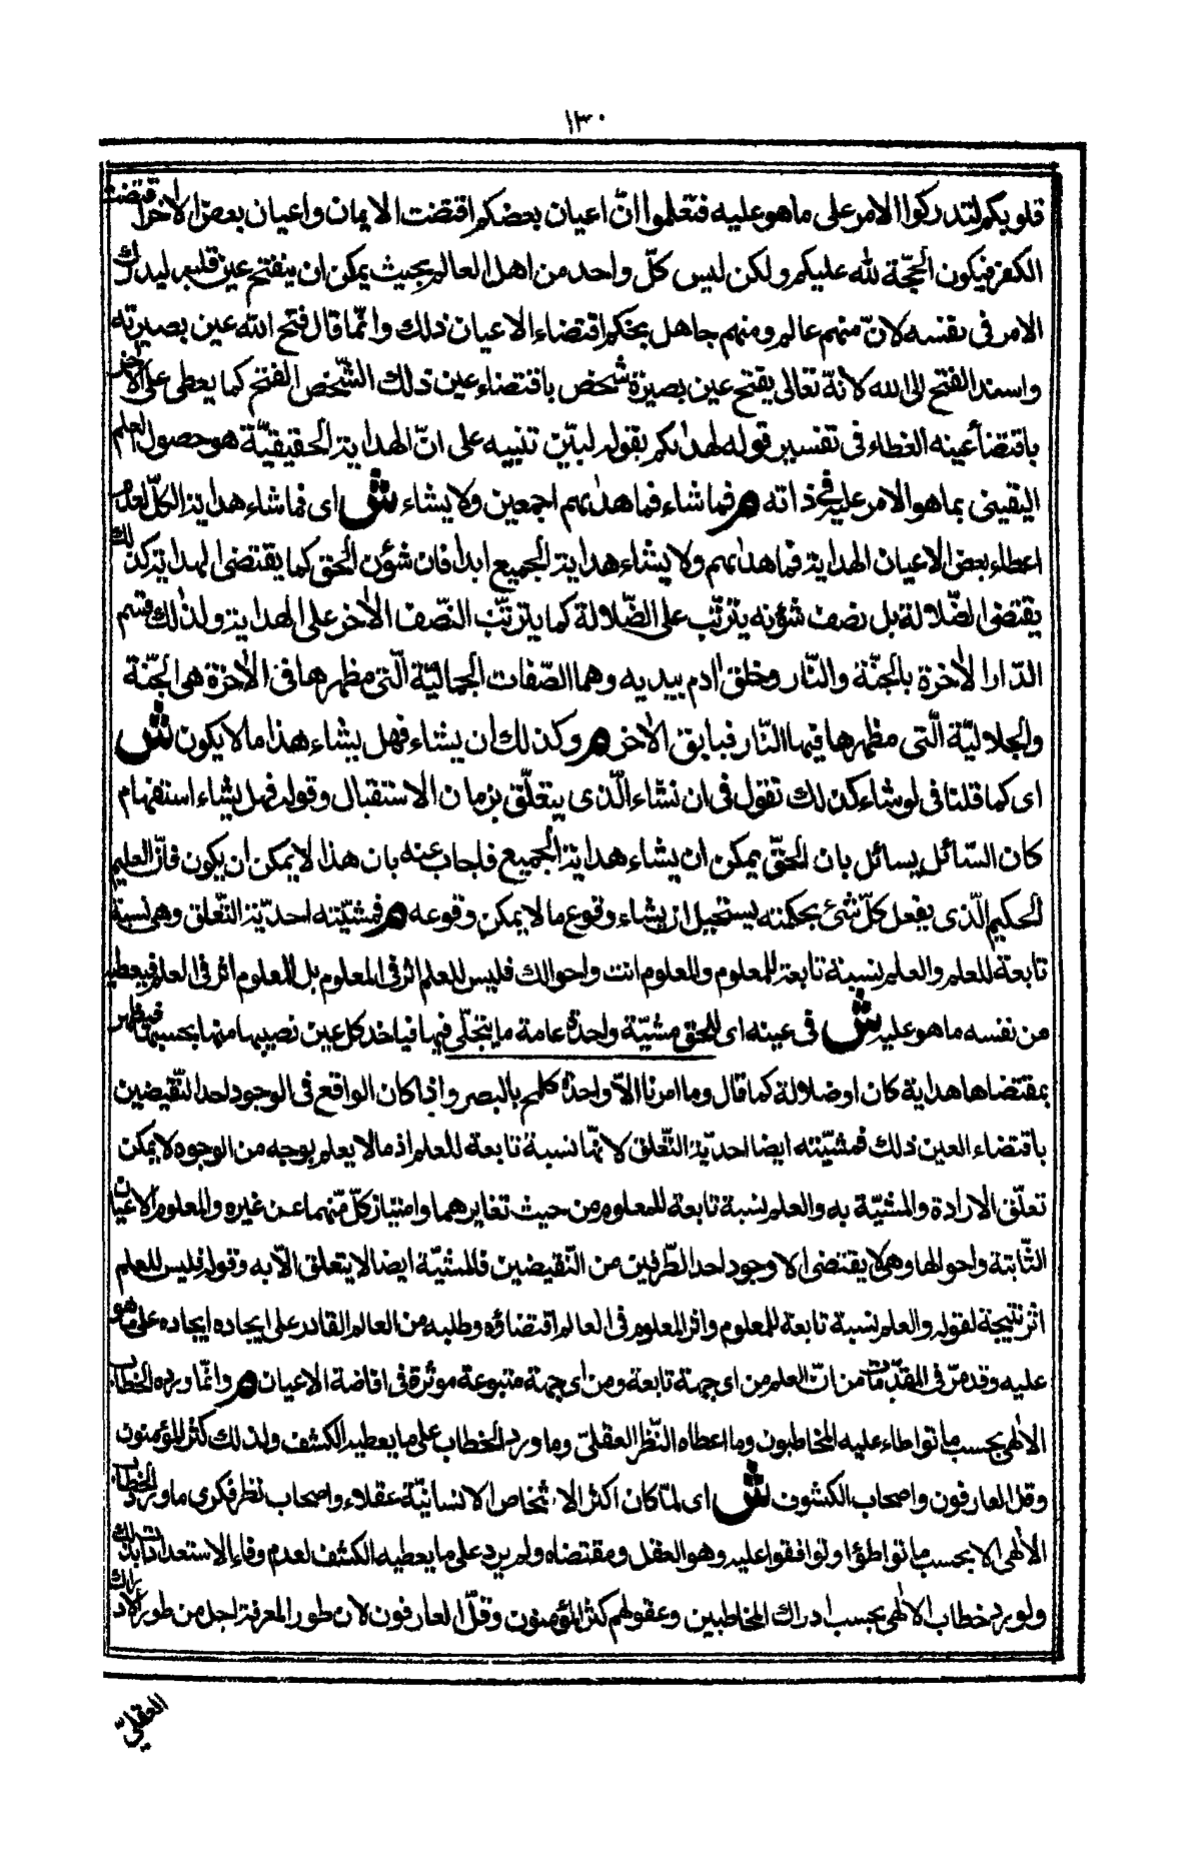 ١٣٠
قلوبكم لتدركوا الامر على ما هو عليه فتعلموا انّ اعيان بعضكم اقتضت الايمان واعيان بعض الاخر اقتضت
الكفر فيكون الحجّة لله عليكم ولكن ليس كلّ واحد من اهل العالم بحيث يمكن ان ينفتح عين قلبه ليدرك
الامر فى نفسه لانّ منهم عالم ومنهم جاهل بحكم اقتضاء الاعيان ذلك وانّما قال فتح الله عين بصيرته
واسند الفتح الى الله لانّه تعالى يفتح عين بصيرة شخص باقتضاء عين ذلك الشّخص الفتح كما يعطى على الآخر
باقتضأ عينه الغطاء فى تفسير قوله لهداكم بقوله لبيّن تنبيه على انّ الهداية الحقيقيّة هو حصول العلم
اليقينى بما هو الامر عليه فى ذاته م فما شاء فما هداهم اجمعين ولا يشاء ش اى فما شاء هداية الكلّ لعدم
اعطاء بعض الاعيان الهداية فما هداهم ولا يشاء هداية الجميع ابدا فان شؤن الحق كما يقتضى الهداية كذلك
يقتضى الضّلالة بل نصف شؤنه يترتّب على الضّلالة كما يترتّب النّصف الآخر على الهداية ولذلك قسم
الدّار الآخرة بالجنّة والنّار وخلق ادم بيديه وهما الصّفات الجماليّة الّتى مظهرها فى الآخرة هى الجنّة
والجلاليّة الّتى مظهرها فيها النّار فيابق الآخر م وكذلك ان يشاء فهل يشاء هذا ما لا يكون ش
اى كما قلنا فى لو شاء كذلك نقول فى ان نشاء الّذى يتعلّق بزمان الاستقبال وقوله فهل يشاء استفهام
كان السّائل يسائل بان الحقّ يمكن ان يشاء هداية الجميع فاجاب عنه بان هذا لا يمكن ان يكون فانّ العليم
الحكيم الّذى يفعل كلّ شئ بحكمته يستحيل ان يشاء وقوع ما لا يمكن وقوعه م فمشيّته احديّة التّعلق وهى نسبة
تابعة للعلم والعلم نسبة تابعة للمعلوم والمعلوم انت واحوالك فليس للعلم اثر فى المعلوم بل للمعلوم اثر فى العلم فيعطيه
من نفسه ما هو عليه ش فى عينه اى للحق مشيّة واحدة عامة ما يتجلّى فيها فياخذ كل عين نصيبها منها بحسبها فيظهر
بمقتضاها هداية كان او ضلالة كما قال وما امرنا الّا واحدة كلمح بالبصر واذا كان الواقع فى الوجود احد النّقيضين
باقتضاء العين ذلك فمشيّته ايضا احديّة التّعلق لانّها نسبة تابعة للعلم اذ ما لا يعلم بوجه من الوجوه لا يمكن
تعلّق الارادة والمشيّة به والعلم نسبة تابعة للمعلوم من حيث تغايرهما وامتياز كلّ منهما عن غيره والمعلوم الاعيان
الثّابتة واحوالها وهى لا يقتضى الا وجود احد الطّرفين من النّقيضين فالمشيّة ايضا لا يتعلق الّا به وقوله فليس للعلم
اثر نتيجة لقوله والعلم نسبة تابعة للمعلوم واثر المعلوم فى العالم اقتضاؤه وطلبه من العالم القادر على ايجاده ايجاده على ما هو
عليه وقد مرّ فى المقدّمات من انّ العلم من اى جهة تابعة ومن اى جهة متبوعة موثرة فى افاضة الاعيان م وانّما ورد الخطاب
الالهى بحسب ما تواطاء عليه المخاطبون وما اعطاه النّظر العقلىّ وما ورد الخطاب على ما يعطيه الكشف ولذلك كثر المؤمنون
وقل العارفون واصحاب الكشوف ش اى لمّا كان اكثر الاشخاص الانسانيّة عقلاء واصحاب نظر فكرى ما ورد الخطاب
الالهى الا بحسب ما تواطؤا وتوافقوا عليه وهو العقل ومقتضاه ولم يرد على ما يعطيه الكشف لعدم وفاء الاستعدادات بذلك
ولورد خطاب الالهى بحسب ادراك المخاطبين وعقولهم كثر المؤمنون وقلّ العارفون لان طور المعرفة اجل من طور الادراك
العقلىّ